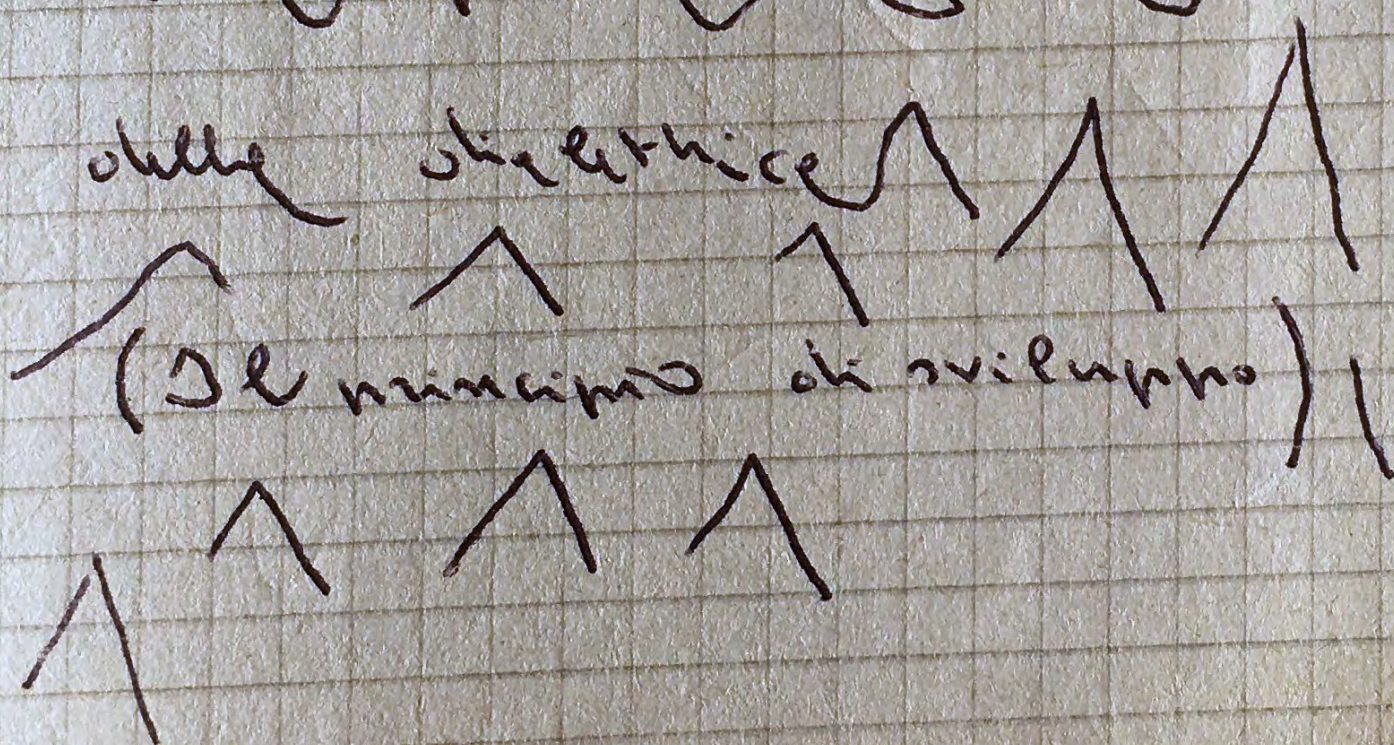 della dialettica
(Il principio di sviluppo)